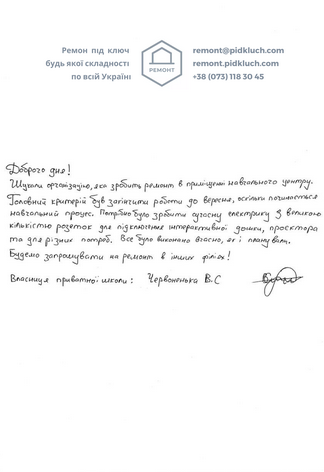 Ремон під ключ
будь якої складності
по всій Україні
РЕМОНТ
remont@pidkluch.com
remont.pidkluch.com
+38 (073) 118 30 45
Доброго дня!
Шукали організацію, яка зробить ремонт в приміщенні навчального центру.
Головний критерій був закінчити роботи до вересня, оскільки починається
навчальний процес. Потрібно було зробити сучасну електрику з великою
кількістю розеток для підключення інтерактивної дошки, проєктора
та для різних потреб. Все було виконано вчасно, як і планували.
Будемо запрошувати на ремонт в інших філіях!
Власниця приватної школи: Червоненька В.С